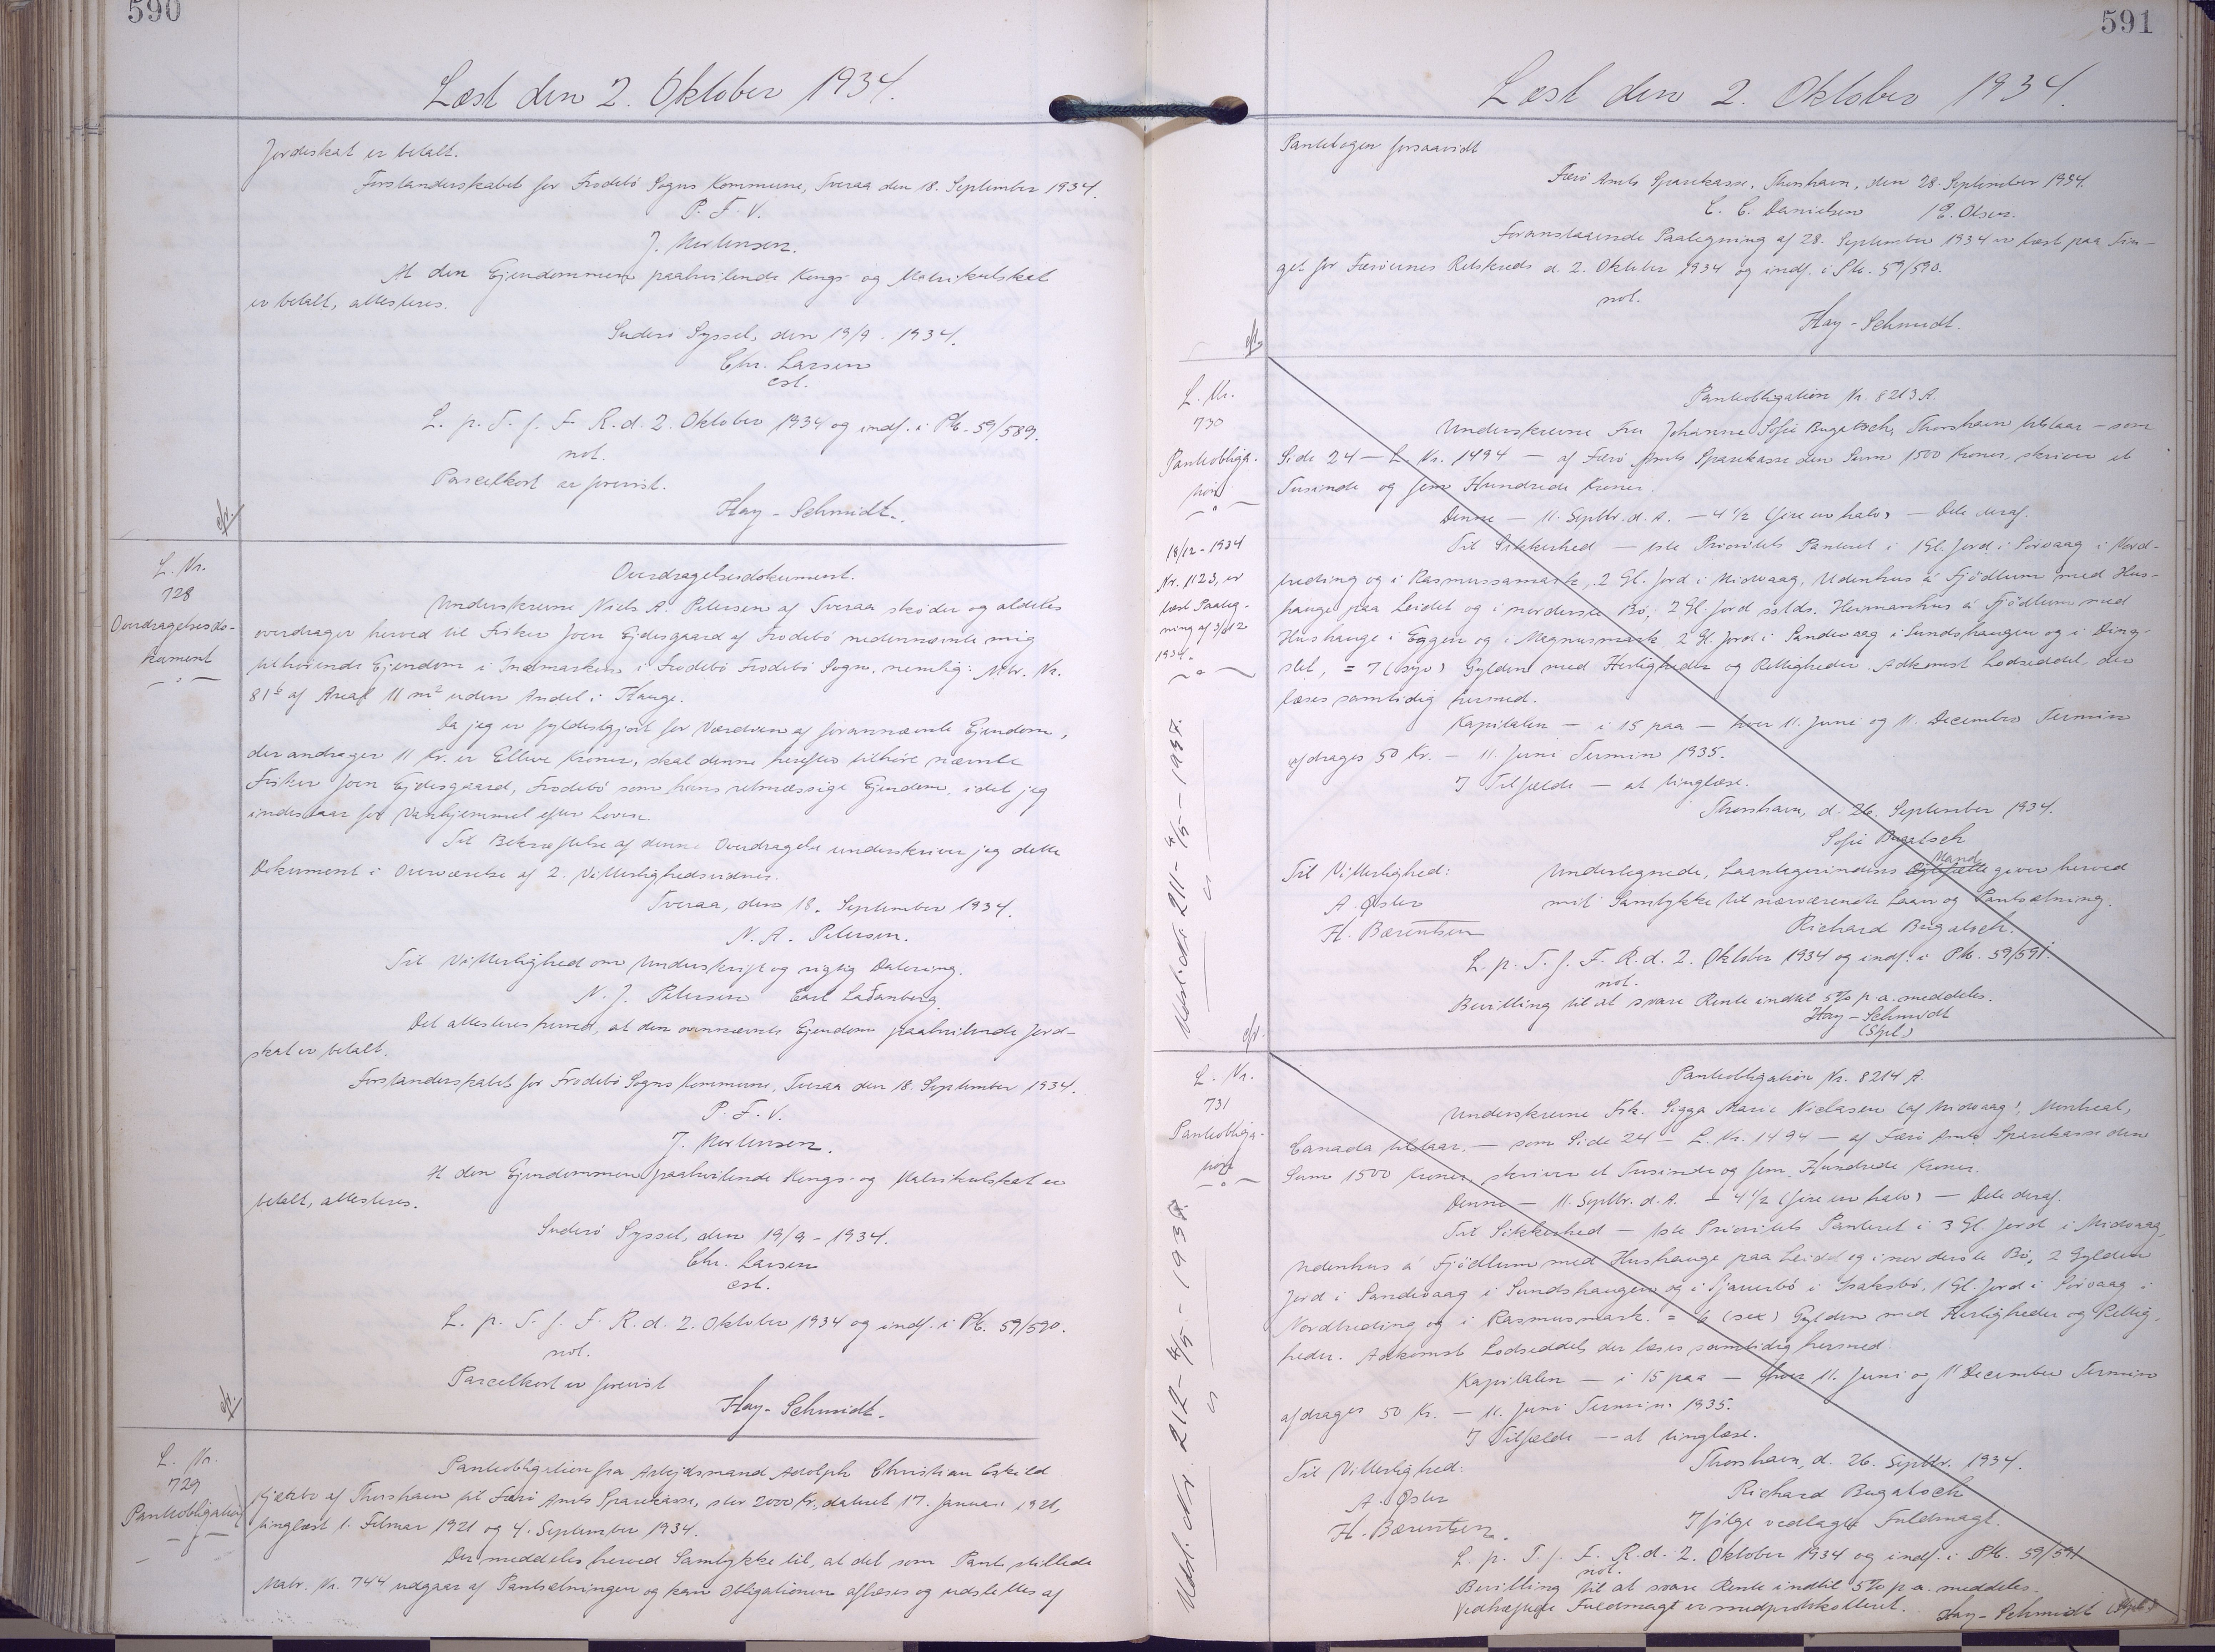 590
Læst den 2. Oktober 1934.
Jordeskat er betalt.
Forstanderskabet for Frodebö Sogns Kommune, Tveraa den 18. September 1934.
P. F. V.
J. Mortensen.
At den Ejendommen paahvilende Kongs- og Matrikulskat
er betalt, attesteres.
Suderö Syssel, den 19/9 - 1934.
Chr. Larsen
cst.
L. p. T. f. F. R. d. 2. Oktober 1934 og indf. i Pb. 59/589.
not.
Parcelkort er forevist.
Hay-Schmidt.
L. Nr.
728
Overdragelsesdo-
kument
Overdragelsesdokument.
Underskrevne Niels A. Petersen af Tveraa sköder og aldeles
overdrager herved til Fisker Joen Ejdesgaard af Frodebö nedennævnte mig
tilhörende Ejendom i Indmarken i Frodebö Frodebö Sogn, nemlig: Mtr. Nr.
81b af Areal 11 m² uden Andel i Hauge.
Da jeg er fyldestgjort for Værdien af forannævnte Ejendom,
der andrager 11 Kr. er Elleve Kroner, skal denne herefter tilhöre nævnte
Fisker Joen Ejdesgaard, Frodebö som hans retmæssige Ejendom, idet jeg
indestaar for Vanhjemmel efter Loven.
Til Bekræftelse af denne Overdragelse underskriver jeg dette
Dokument i Overværelse af 2. Vitterlighedsvidner.
Tveraa, den 18. September 1934.
N. A. Petersen.
Til Vitterlighed om Underskrift og rigtig Datering.
N. J. Petersen Earl Ladanberg.
Det attesteres herved, at den ovennævnte Ejendom paahvilende Jord-
skat er betalt.
Forstanderskabet for Frodebö Sogns Kommune, Tveraa den 18. September 1934.
P. F. V.
J. Mortensen.
At den Ejendommen paahvilende Kongs- og Matrikulskat er
betalt, attesteres.
Suderö Syssel, den 19/9 - 1934.
Chr. Larsen
cst.
L. p. T. f. F. R. d. 2. Oktober 1934 og indf. i Pb. 59/590.
not.
Parcelkort er forevist
Hay-Schmidt.
L. Nr.
729
Pantobligation
Pantobligation fra Arbejdsmand Adolph Christian Eskild
Kjætebo af Thorshavn til Færö Amts Sparekasse, stor 2000 Kr., dateret 17. Januar 1921,
tinglæst 1. Februar 1921 og 4. September 1934.
Der meddeles herved Samtykke til, at det som Pant stillede
Matr. Nr. 744 udgaar af Pantsætningen og kan Obligationen aflæses og udslettes af
591
Læst den 2. Oktober 1934.
Pantebogen forsaavidt
Færö Amts Sparekasse, Thorshavn, den 28. September 1934.
C. C. Danielsen / E. Olsen.
Foranstaaende Paategning af 28. September 1934 er læst paa Tin-
get for Færöernes Retskreds d. 2. Oktober 1934 og indf. i Pb. 59/590.
not.
Hay-Schmidt.
L. Nr.
730
Pantobliga-
tion
18/12-1934
Nr. 1123, er
læst Paateg-
ning af 3/12
1934.
Udsl. d. Nr. 211 - 4/5 - 1937.
Pantobligation Nr. 8213 A.
Underskrevne Fru Johanne Sofie Bugatsch, Thorshavn tilstaar - som
Side 24 - L. Nr. 1494 - af Færö Amts Sparekasse den Sum 1500 Kroner, skriver et
Tusinde og fem Hundrede Kroner.
Denne - 11. Septbr. d. A. - 4 1/2 (fire en halv) - Dele deraf.
Til Sikkerhed - 1ste Prioritets Panteret i 1 Gl. Jord i Sörvaag i Nord-
treding og i Rasmussamark, 2 Gl. Jord i Midvaag, Udenhus á Fjödlum med Hus-
hauge paa Leidet og i norderste Bö, 2 Gl. Jord sstds. Heimanhus á Fjödlum med
Hushauge i Eggen og i Magnusmark 2 Gl. Jord i Sandevaag i Sundshaugen og i Ding-
slet, = 7 (syv) Gylden med Herligheder og Rettigheder. Adkomst Lodseddel, der
læses samtidig hermed.
Kapitalen - i 15 paa - hver 11. Juni og 11. December Termin
afdrages 50 Kr. - 11. Juni Termin 1935.
I Tilfælde - at tinglæse.
Thorshavn, d. 26. September 1934.
Sofie Bugatsch
Til Vitterlighed:
A. Öster
H. Bærentsen
Undertegnede, Laantagerindens Mand giver herved
mit Samtykke til nærværende Laan og Pantsætning.
Richard Bugatsch.
L. p. T. f. F. R. d. 2. Oktober 1934 og indf. i Pb. 59/591.
not.
Bevilling til at svare Rente indtil 5% p. a. meddeles.
Hay-Schmidt
(Stpl.)
L. Nr.
731
Pantobliga-
tion
Udsl. d. Nr. 212 - 4/5 - 1937.
Pantobligation Nr. 8214 A.
Underskrevne Frk. Sigga Marie Niclasen (af Midvaag), Montreal,
Canada tilstaar - som Side 24 - L. Nr. 1494 - af Færö Amts Sparekasse den
Sum 1500 Kroner, skriver et Tusinde og fem Hundrede Kroner.
Denne - 11. Septbr. d. A. - 4 1/2 (fire en halv) - Dele deraf.
Til Sikkerhed - 1ste Prioritets Panteret i 3 Gl. Jord i Midvaag,
Udenhus á Fjödlum med Hushauge paa Leidet og i norderste Bö, 2 Gylden
Jord i Sandevaag i Sundshaugen og i Isaksbö, 1 Gl. Jord i Sörvaag i
Nordtreding og i Rasmusmark. = 6 (sex) Gylden med Herligheder og Rettig-
heder. Adkomst Lodseddel der læses samtidig hermed.
Kapitalen - i 15 paa - hver 11. Juni og 11 December Termin
afdrages 50 Kr. - 11. Juni Termin 1935.
I Tilfælde - at tinglæse.
Thorshavn, d. 26. Septbr. 1934.
Til Vitterlighed:
A. Öster
H. Bærentsen.
Richard Bugatsch
Ifölge vedlagt Fuldmagt.
L. p. T. f. F. R. d. 2. Oktober 1934 og indf. i Pb. 59/591
not.
Bevilling til at svare Rente indtil 5% p. a. meddeles.
Vedhæftede Fuldmagt er medprotokolleret. Hay-Schmidt (Stpl.)